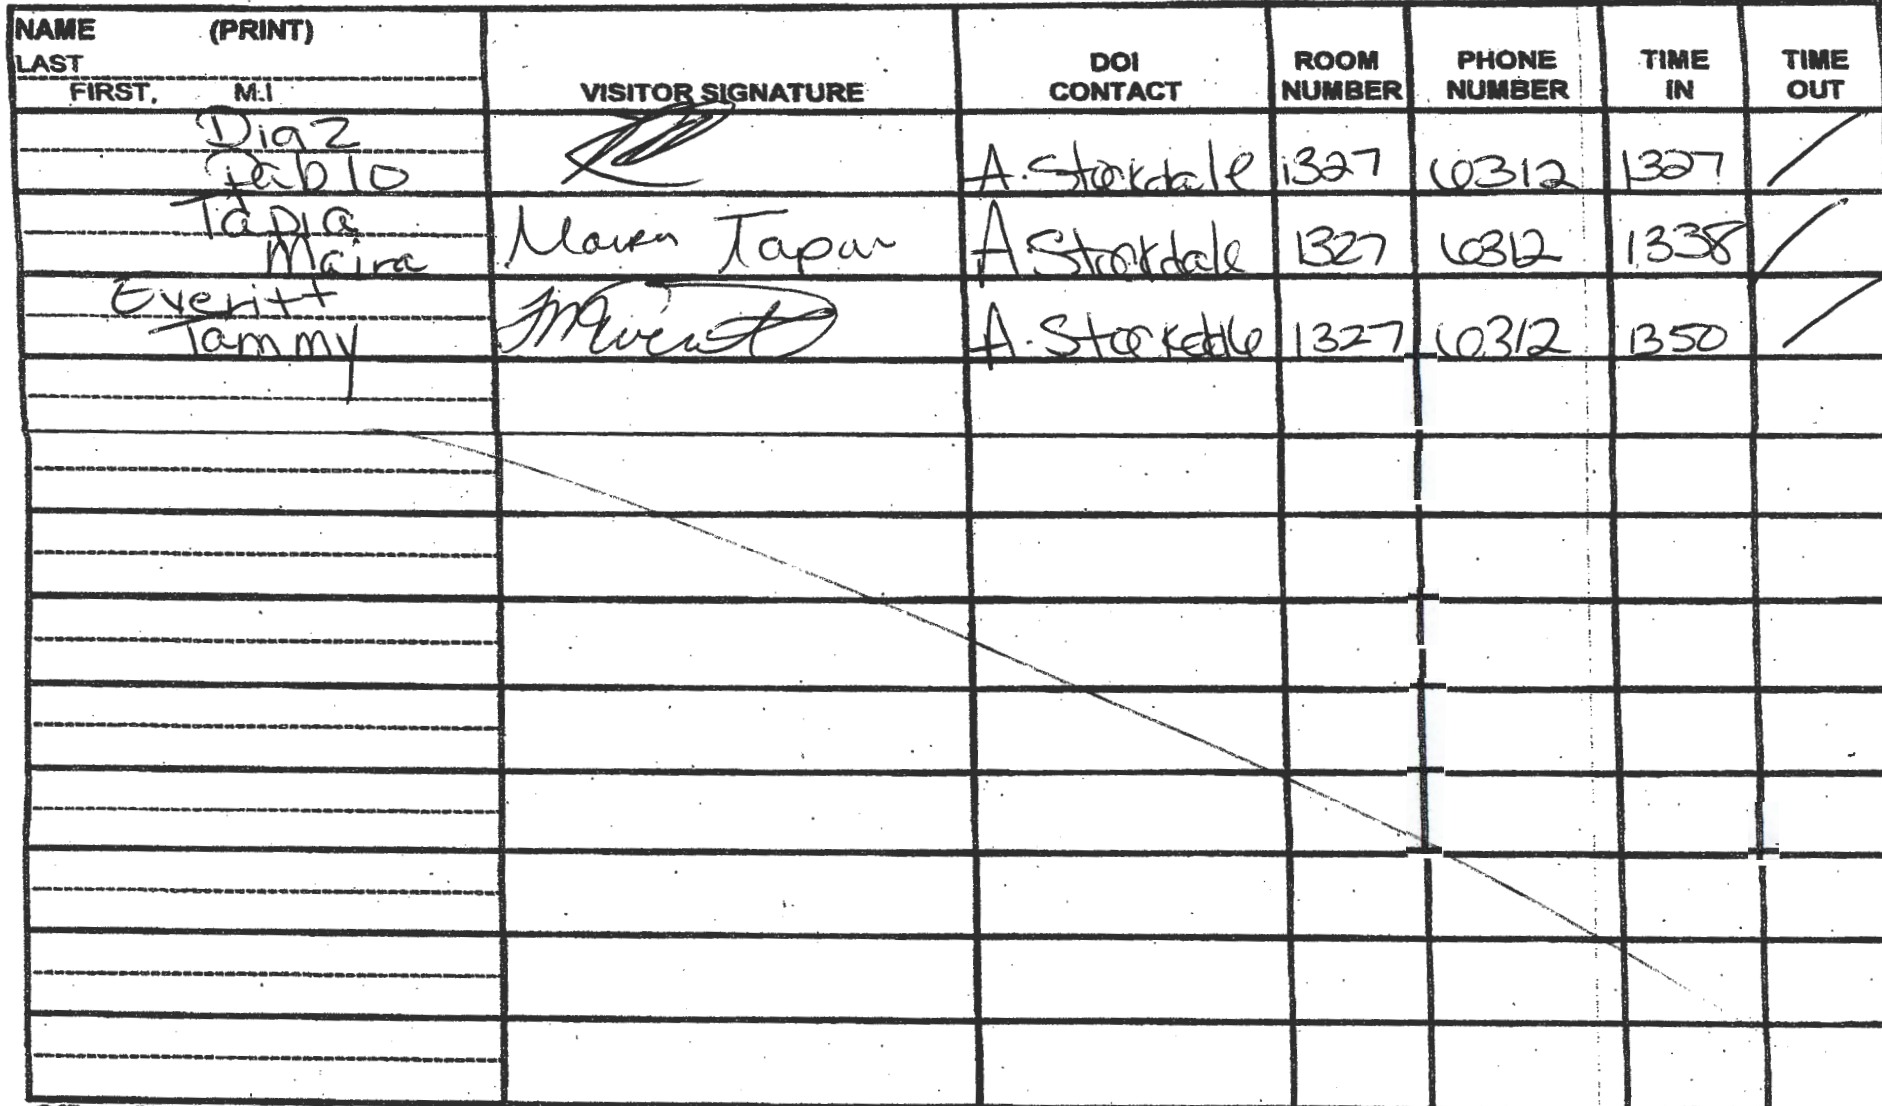 NAME (PRINT)
LAST
FIRST, M.I
VISITOR SIGNATURE
DOI
CONTACT
ROOM
NUMBER
PHONE
NUMBER
TIME
IN
TIME
OUT
Diaz
Pablo
A. Stockdale 1327 6312 1327
Tapia
Maira
Maira Tapia A Stockdale 1327 6312 1338
Everitt
Tammy
A. Stockdale 1327 6312 1350